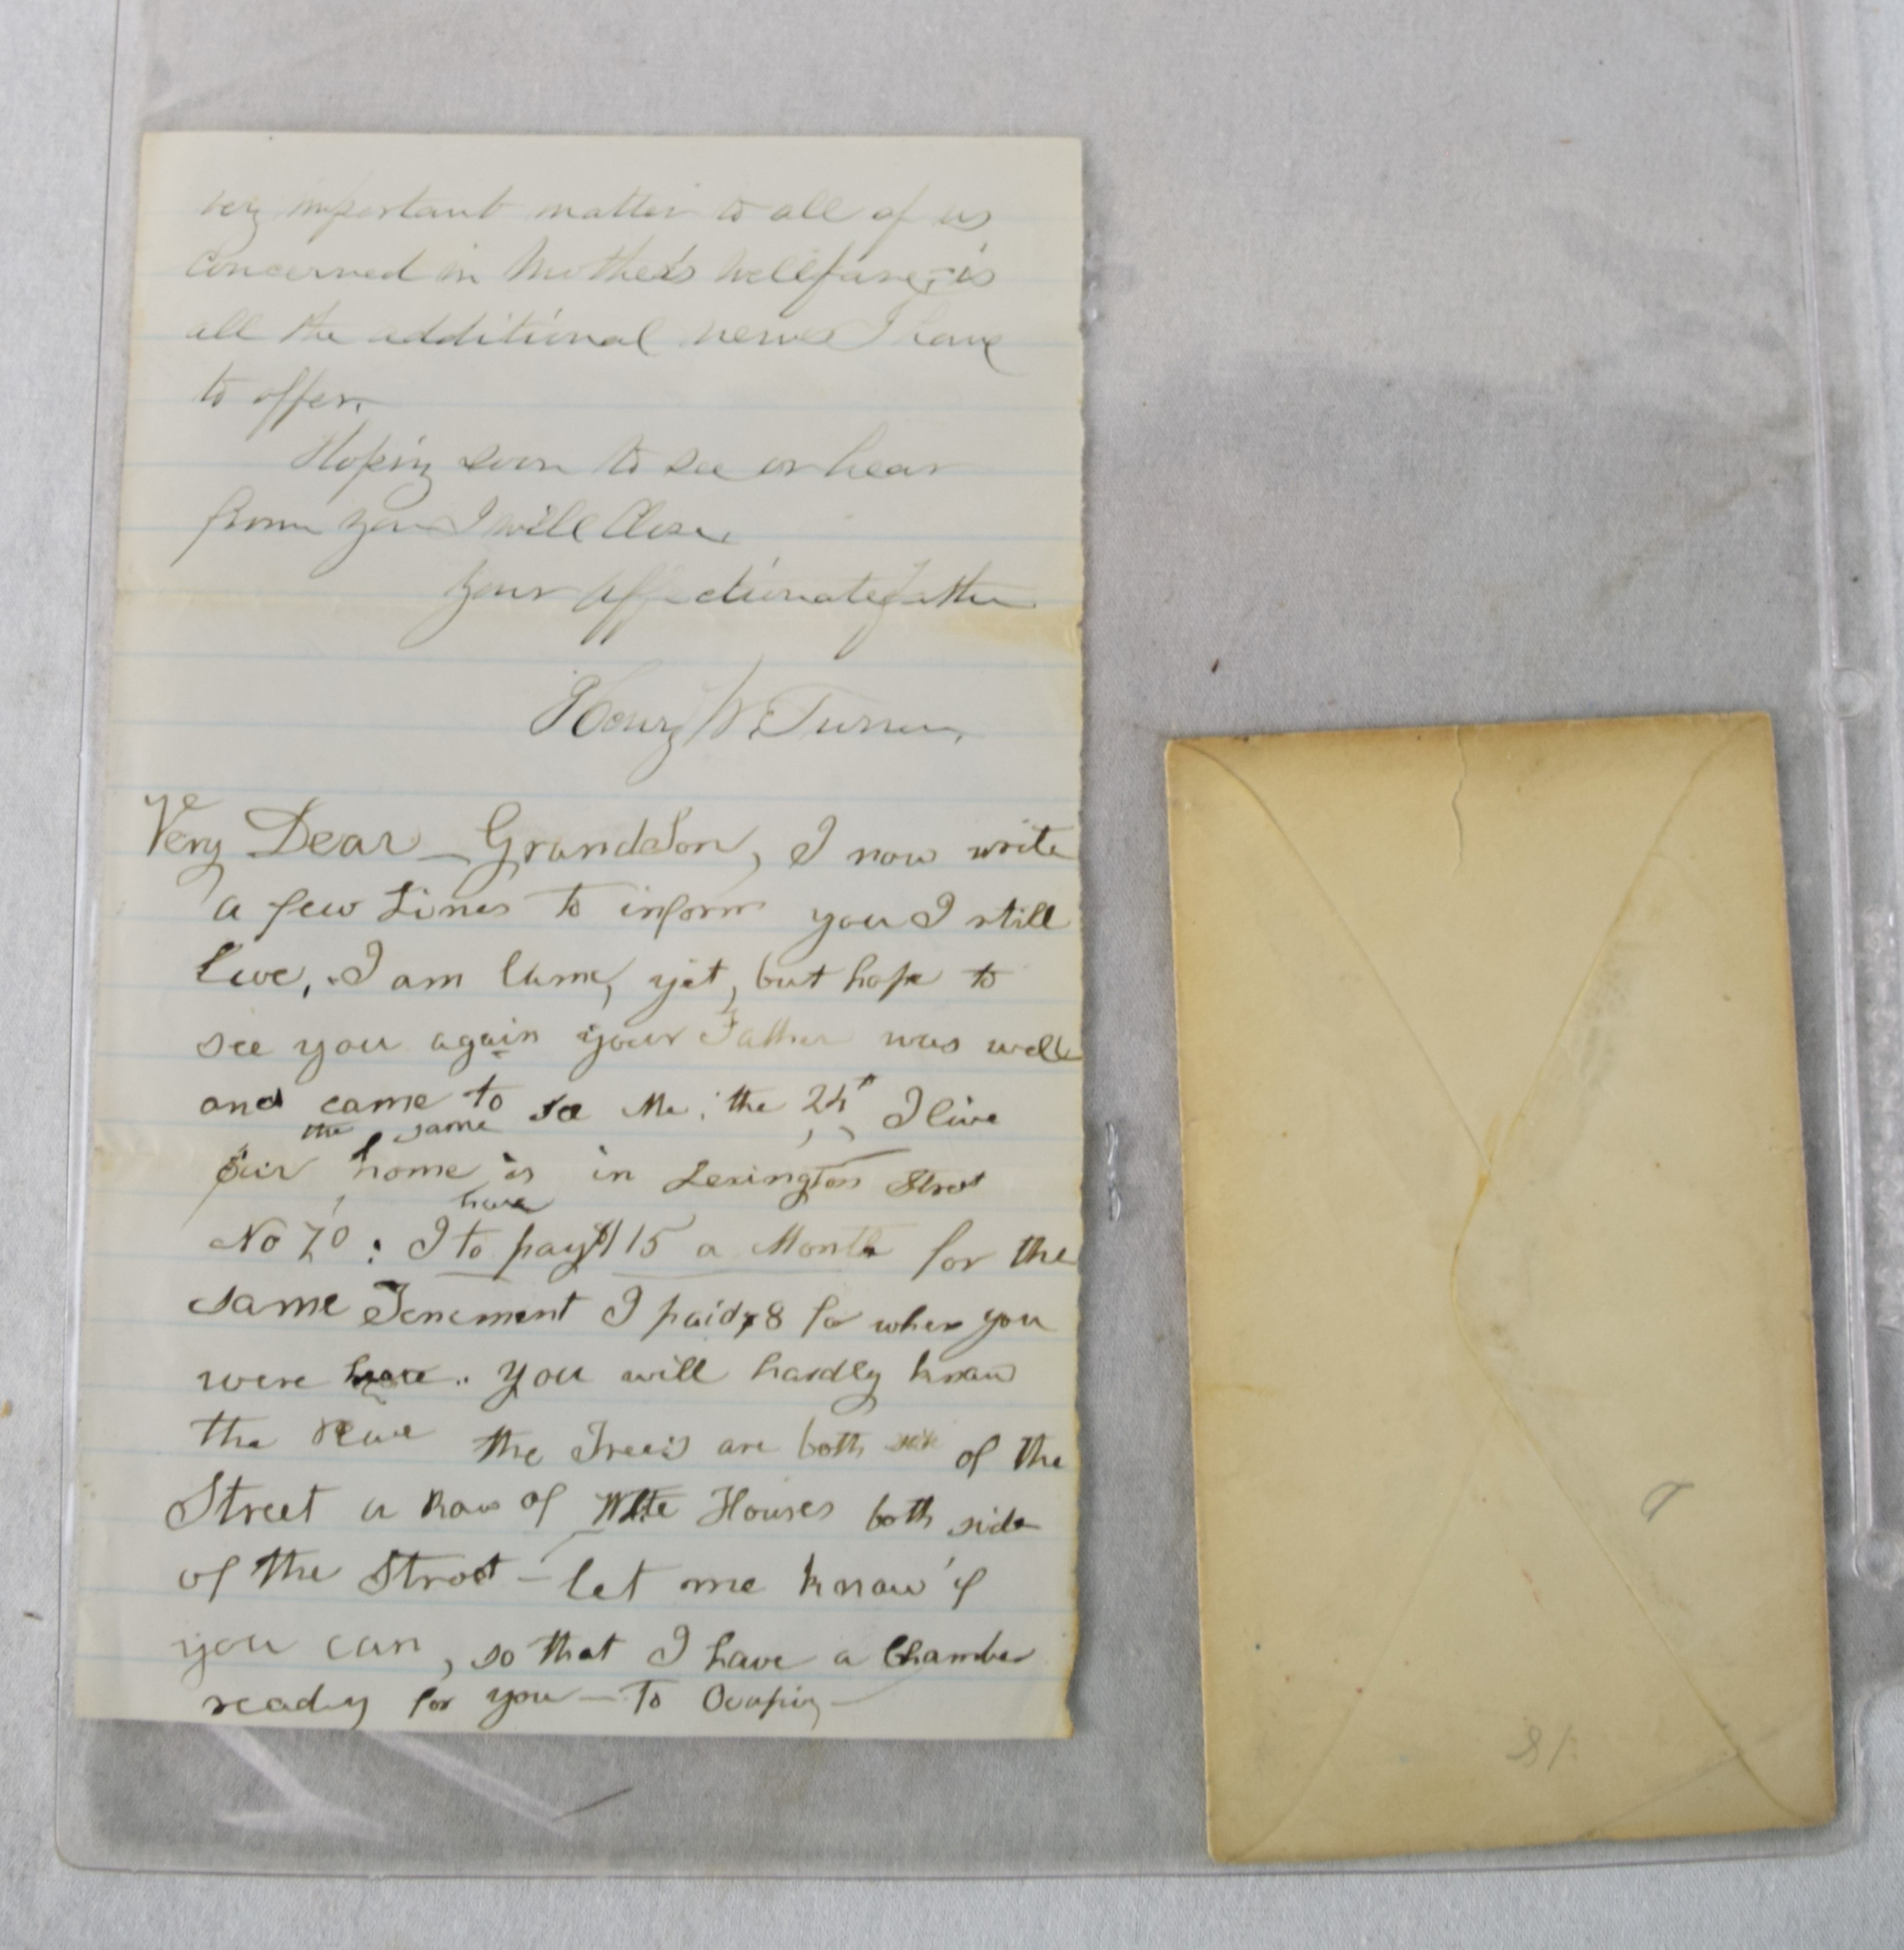 very important matter to all of us
Concerned in Mother's wellfare, is
all the additional news I have
to offer.
Hoping soon to see or hear
from you I will Close.
Your affectionate father
Henry W. Turner.
Very Dear Grandson, I now write
a few Lines to inform you I still
live, I am lame, yet, but hope to
see you again your Father was well
and came to see Me: the 24th I live
the same
our home is in Lexington Street
have
No 70: I to pay $15 a Month for the
same Tenement I paid $8 for when you
were here. you will hardly know
the the Trees are both side of the
Street a Row of White Houses both side
of the Street - let me know if
you can, so that I have a Chamber
ready for you - To Ocupiy -
18